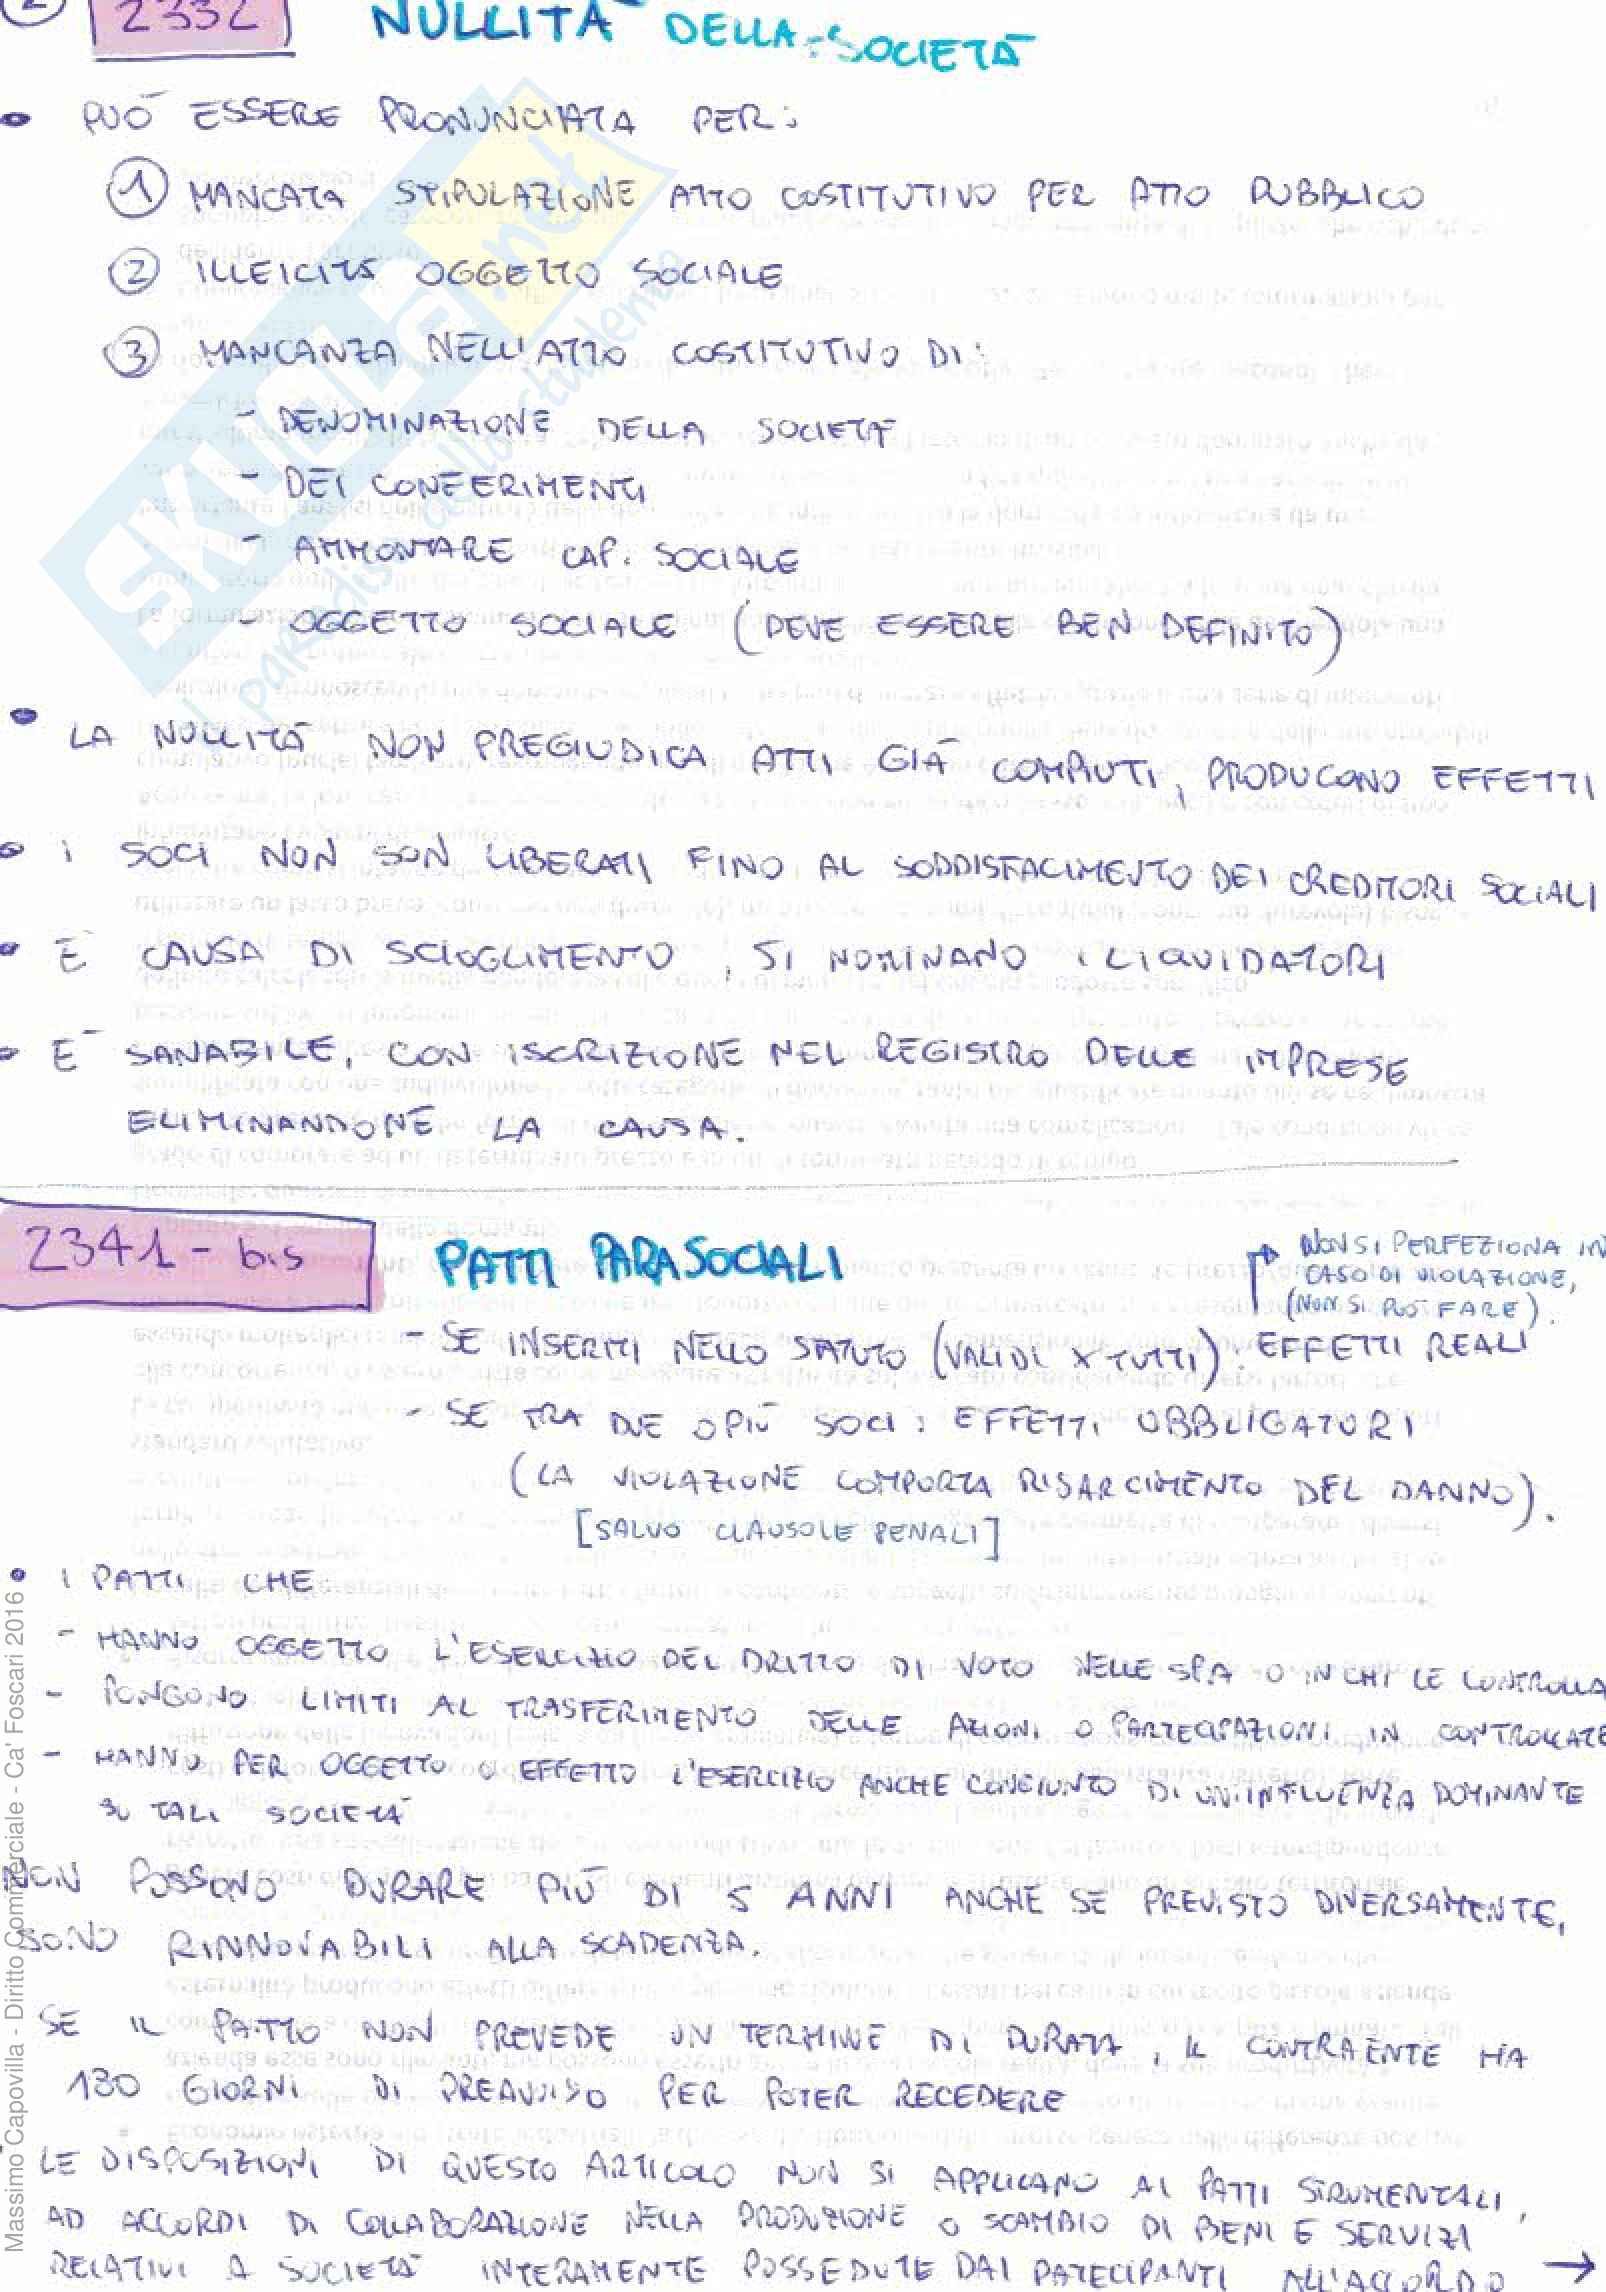 2332 NULLITÀ DELLA SOCIETÀ
• PUÒ ESSERE PRONUNCIATA PER:
① MANCATA STIPULAZIONE ATTO COSTITUTIVO PER ATTO PUBBLICO
② ILLEICITÀ OGGETTO SOCIALE
③ MANCANZA NELL'ATTO COSTITUTIVO DI:
- DENOMINAZIONE DELLA SOCIETÀ
- DEI CONFERIMENTI
- AMMONTARE CAP. SOCIALE
- OGGETTO SOCIALE (DEVE ESSERE BEN DEFINITO)
• LA NULLITÀ NON PREGIUDICA ATTI GIÀ COMPIUTI, PRODUCONO EFFETTI
• I SOCI NON SON LIBERATI FINO AL SODDISFACIMENTO DEI CREDITORI SOCIALI
• È CAUSA DI SCIOGLIMENTO, SI NOMINANO I LIQUIDATORI
• È SANABILE, CON ISCRIZIONE NEL REGISTRO DELLE IMPRESE
ELIMINANDONE LA CAUSA.
2341-bis PATTI PARASOCIALI
→ NON SI PERFEZIONA IN
CASO DI VIOLAZIONE,
(NON SI PUÒ FARE).
- SE INSERITI NELLO STATUTO (VALIDI X TUTTI): EFFETTI REALI
- SE TRA DUE O PIÙ SOCI: EFFETTI OBBLIGATORI
(LA VIOLAZIONE COMPORTA RISARCIMENTO DEL DANNO).
[SALVO CLAUSOLE PENALI]
• I PATTI CHE
- HANNO OGGETTO L'ESERCIZIO DEL DIRITTO DI VOTO NELLE SPA O IN CHI LE CONTROLLA
- PONGONO LIMITI AL TRASFERIMENTO DELLE AZIONI O PARTECIPAZIONI IN CONTROLLATE
- HANNO PER OGGETTO O EFFETTO L'ESERCIZIO ANCHE CONGIUNTO DI UN'INFLUENZA DOMINANTE
SU TALI SOCIETÀ
NON POSSONO DURARE PIÙ DI 5 ANNI ANCHE SE PREVISTO DIVERSAMENTE,
SONO RINNOVABILI ALLA SCADENZA.
SE IL PATTO NON PREVEDE UN TERMINE DI DURATA, IL CONTRAENTE HA
180 GIORNI DI PREAVVISO PER POTER RECEDERE
LE DISPOSIZIONI DI QUESTO ARTICOLO NON SI APPLICANO AI PATTI STRUMENTALI,
AD ACCORDI DI COLLABORAZIONE NELLA PRODUZIONE O SCAMBIO DI BENI E SERVIZI
RELATIVI A SOCIETÀ INTERAMENTE POSSEDUTE DAI PATECIPANTI ALL'ACCORDO →
SKUOLA.net
il paradiso dello studente
Massimo Capovilla - Diritto Commerciale - Ca' Foscari 2016